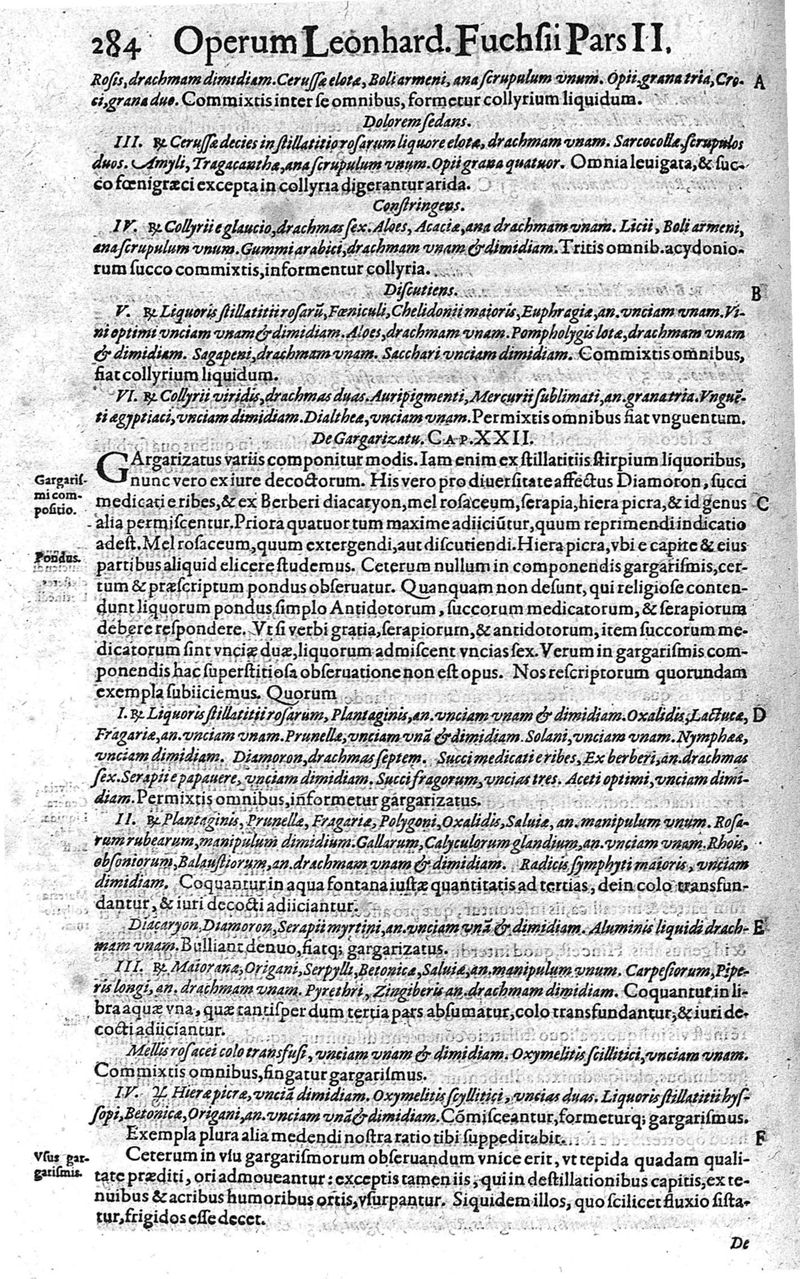 284 Operum Leonhard. Fuchſii Pars II.
Roſis, drachmam dimidiam. Ceruſſæ elotæ, Boli armeni, ana ſcrupulum vnum. Opii, grana tria, Cro- A
ci, grana duo. Commixtis inter ſe omnibus, formetur collyrium liquidum.
Dolorem ſedans.
III. ℞ Ceruſſæ decies in ſtillatitio roſarum liquore elotæ, drachmam vnam. Sarcocollæ, ſcrupulos
duos. Amyli, Tragacanthæ, ana ſcrupulum vnum. Opii grana quatuor. Omnia leuigata, & ſuc-
co fœnigræci excepta in collyria digerantur arida.
Conſtringens.
IV. ℞ Collyrii e glaucio, drachmas ſex. Aloes, Acaciæ, ana drachmam vnam. Licii, Boli armeni,
ana ſcrupulum vnum. Gummi arabici, drachmam vnam & dimidiam. Tritis omnib. a cydonio-
rum ſucco commixtis, informentur collyria.
Diſcutiens. B
V. ℞ Liquoris ſtillatitii roſarũ, Fœniculi, Chelidonii maioris, Euphragiæ, an. vnciam vnam. Vi-
ni optimi vnciam vnam & dimidiam. Aloes, drachmam vnam. Pompholygis lotæ, drachmam vnam
& dimidiam. Sagapeni, drachmam vnam. Sacchari vnciam dimidiam. Commixtis omnibus,
fiat collyrium liquidum.
VI. ℞ Collyrii viridis, drachmas duas. Auripigmenti, Mercurii ſublimati, an. grana tria. Vnguẽ-
ti ægyptiaci, vnciam dimidiam. Dialtheæ, vnciam vnam. Permixtis omnibus fiat vnguentum.
De Gargarizatu. CAP. XXII.
GArgarizatus variis componitur modis. Iam enim ex ſtillatitiis ſtirpium liquoribus,
Gargariſ-
mi com-
poſitio.
nunc vero ex iure decoctorum. His vero pro diuerſitate affectus Diamoron, ſucci
medicati e ribes, & ex Berberi diacaryon, mel roſaceum, ſerapia, hiera picra, & id genus C
alia permiſcentur. Priora quatuor tum maxime adiiciũtur, quum reprimendi indicatio
adeſt. Mel roſaceum, quum extergendi, aut diſcutiendi. Hiera picra, vbi e capite & eius
Pondus.
partibus aliquid elicere ſtudemus. Ceterum nullum in componendis gargariſmis, cer-
tum & præſcriptum pondus obſeruatur. Quanquam non deſunt, qui religioſe conten-
dunt liquorum pondus, ſimplo Antidotorum, ſuccorum medicatorum, & ſerapiorum
debere reſpondere. Vt ſi verbi gratia, ſerapiorum, & antidotorum, item ſuccorum me-
dicatorum ſint vnciæ duæ, liquorum admiſcent vncias ſex. Verum in gargariſmis com-
ponendis hac ſuperſtitioſa obſeruatione non eſt opus. Nos reſcriptorum quorundam
exempla ſubiiciemus. Quorum
I. ℞ Liquoris ſtillatitii roſarum, Plantaginis, an. vnciam vnam & dimidiam. Oxalidis, Lactucæ, D
Fragariæ, an. vnciam vnam. Prunellæ, vnciam vnã & dimidiam. Solani, vnciam vnam. Nymphææ,
vnciam dimidiam. Diamoron, drachmas ſeptem. Succi medicati e ribes, Ex berberi, an. drachmas
ſex. Serapii e papauere, vnciam dimidiam. Succi fragorum, vncias tres. Aceti optimi, vnciam dimi-
diam. Permixtis omnibus, informetur gargarizatus.
II. ℞ Plantaginis, Prunellæ, Fragariæ, Polygoni, Oxalidis, Saluiæ, an. manipulum vnum. Roſa-
rum rubearum, manipulum dimidium. Gallarum, Calyculorum glandium, an. vnciam vnam. Rhois,
obſoniorum, Balauſtiorum, an. drachmam vnam & dimidiam. Radicis ſymphyti maioris, vnciam
dimidiam. Coquantur in aqua fontana iuſtæ quantitatis ad tertias, dein colo transfun-
dantur, & iuri decocti adiiciantur.
Diacaryon, Diamoron, Serapii myrtini, an. vnciam vnã & dimidiam. Aluminis liquidi drach- E
mam vnam. Bulliant denuo, fiatq; gargarizatus.
III. ℞ Maioranæ, Origani, Serpylli, Betonicæ, Saluiæ, an. manipulum vnum. Carpeſiorum, Pipe-
ris longi, an. drachmam vnam. Pyrethri, Zingiberis an. drachmam dimidiam. Coquantur in li-
bra aquæ vna, quæ tantiſper dum tertia pars abſumatur, colo transfundantur, & iuri de-
cocti adiiciantur.
Mellis roſacei colo transfuſi, vnciam vnam & dimidiam. Oxymelitis ſcillitici, vnciam vnam.
Commixtis omnibus, fingatur gargariſmus.
IV. ℞ Hieræ picræ, vnciã dimidiam. Oxymelitis ſcyllitici, vncias duas. Liquoris ſtillatitii hyſ-
ſopi, Betonicæ, Origani, an. vnciam vnã & dimidiam. Cõmiſceantur, formeturq; gargariſmus.
Exempla plura alia medendi noſtra ratio tibi ſuppeditabit. F
Vſus gar-
gariſmis.
Ceterum in vſu gargariſmorum obſeruandum vnice erit, vt tepida quadam quali-
tate præditi, ori admoueantur: exceptis tamen iis, qui in deſtillationibus capitis, ex te-
nuibus & acribus humoribus ortis, vſurpantur. Siquidem illos, quo ſcilicet fluxio ſiſta-
tur, frigidos eſſe decet.
De